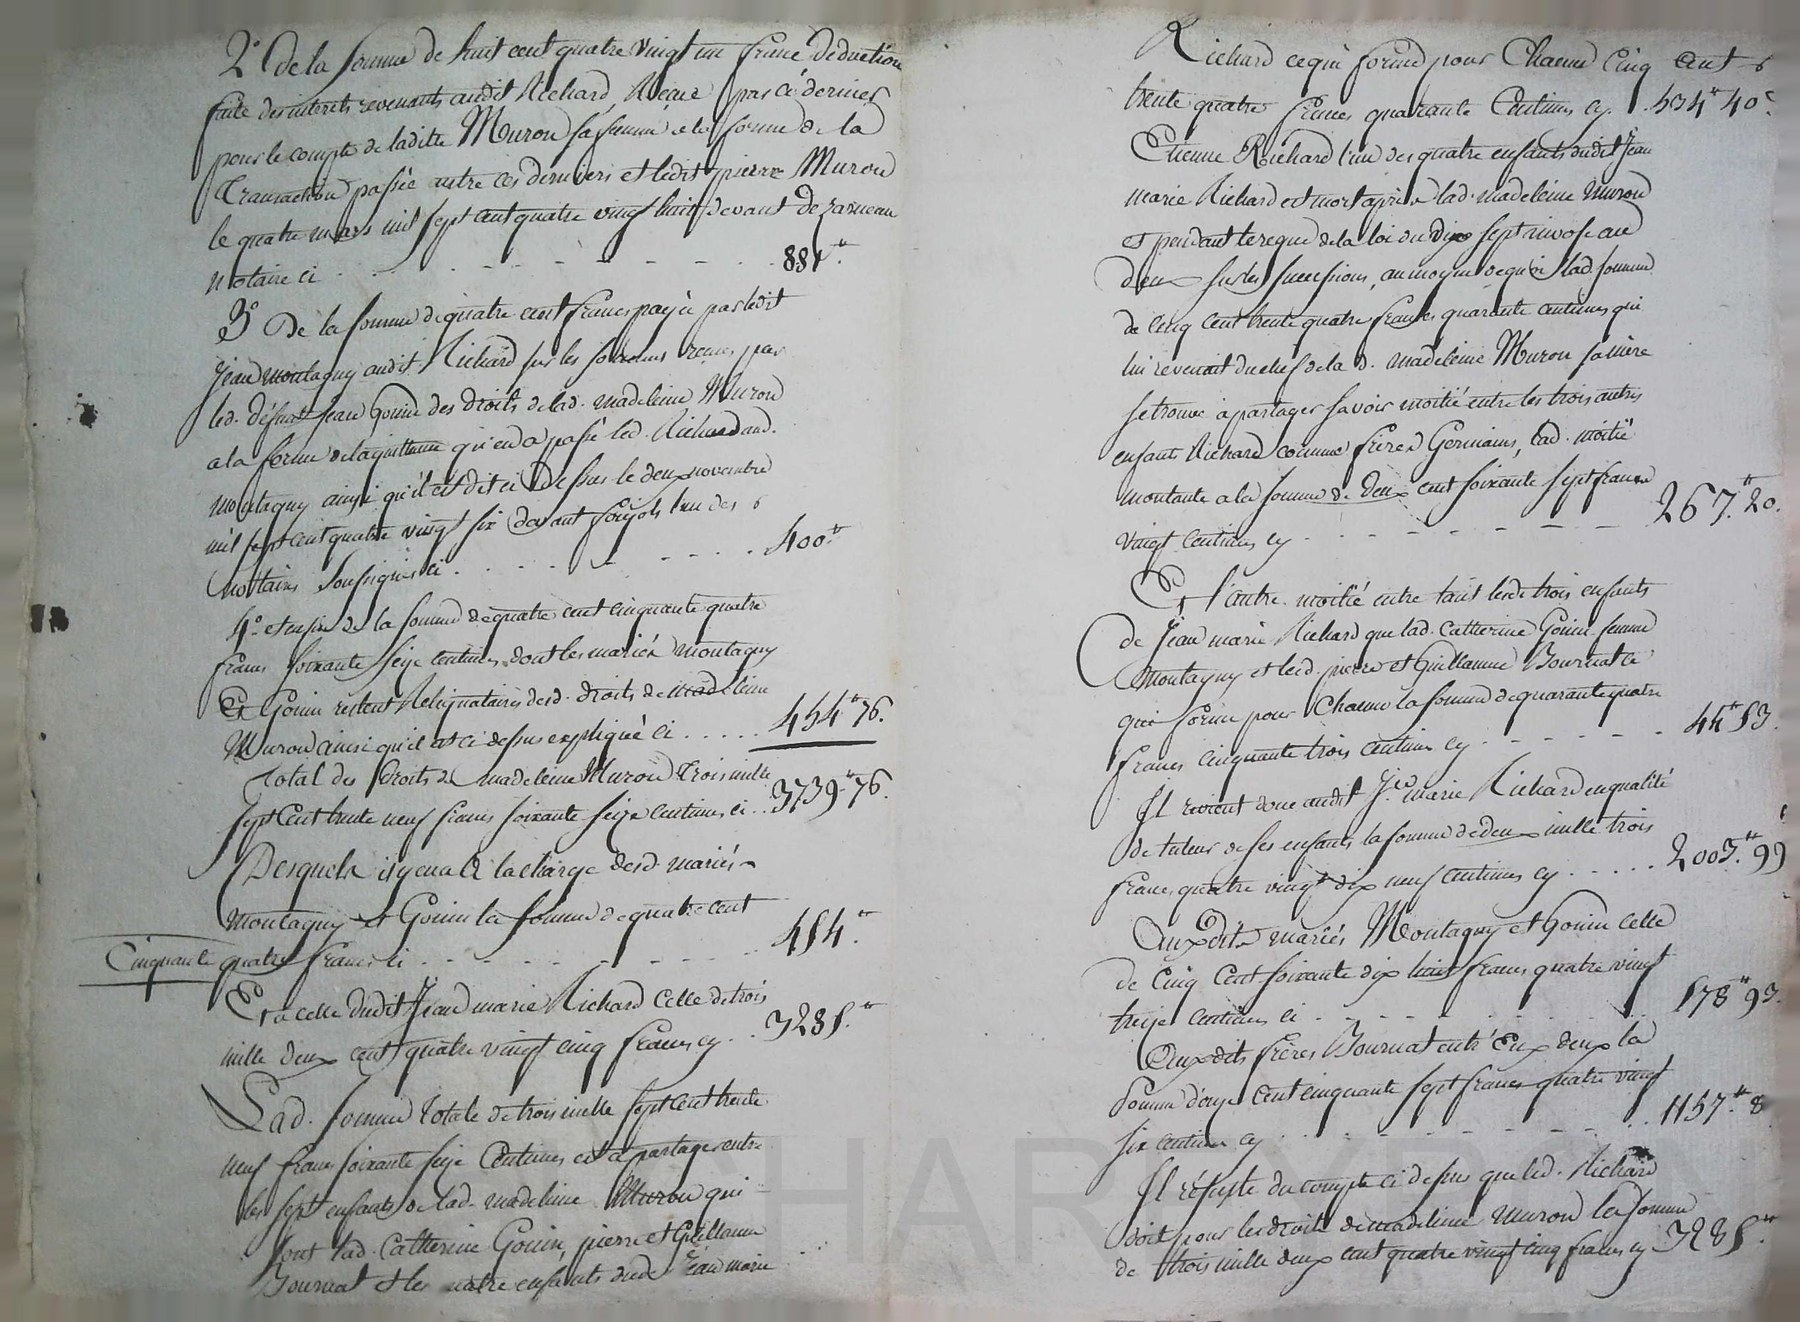 2° De la somme de huit cent quatre vingt un franc deduction
faite des interets revenants audit Richard, Recue par cé dernier
pour le compte de ladite Muron sa femme et la forme de la
Transaction passée entre ces derniers et ledit pierre Muron
le quatre mars mil sept cent quatre vingt huit devant Dezarneau
Notaire ci . . . . . . . . . . 881.tt
3° De la somme de quatre cent francs payée par ledit
Jean montagny audit Richard sur les sommes recues par
led. défunt Jean Gonin des droits de lad. madeleine Muron
a la forme de la quittance qu'en a passé led. Richard aud.
Montagny ainsi qu'il est dit ci Dessus le deux novembre
mil sept cent quatre vingt six devant l'un des
Nottaires Soussignés ci . . . . . . . . 400.tt
4° et enfin de la somme de quatre cent cinquante quatre
francs soixante seize centimes dont les mariés montagny
Et Gonin restent Reliquataires desd. droits de Madeleine
Muron ainsi qu'il est ci dessus expliqué ci . . . . . 454.tt 76.
Total des droits de madeleine Muron trois mille
sept cent trente neuf francs soixante seize centimes ci . . 3739.tt 76.
Desquels il y en a à la charge desd. mariés
Montagny et Gonin la somme de quatre cent
Cinquante quatre francs ci . . . . . . . . 454.tt
Et a celle dudit Jean marie Richard celle de trois
mille deux cent quatre vingt cinq francs cy . . 3285.tt
Lad. somme totale de trois mille sept cent trente
neuf francs soixante seize Centimes est a partager entre
les sept enfants de lad. madeleine Muron qui
sont lad. Catherine Gonin, pierre et Guillaume
Bournat et les quatre enfants dud. Jean marie
Richard ce qui forme pour Chacun Cinq cent
trente quatre francs quarante Centimes cy . . 534.tt 40.c
Etienne Richard l'un des quatre enfants dudit Jean
marie Richard est mort après lad. madeleine Muron
et pendant le regne de la loi du dix sept nivose an
deux sur les successions, au moyen de quoi lad. somme
de cinq cent trente quatre francs quarante centimes qui
lui revenait du chef de la d. madeleine Muron sa mère
se trouve a partager savoir moitié entre les trois autres
enfants Richard comme frères Germains, lad. moitié
montante a la somme de deux cent soixante sept francs
vingt centimes cy . . . . . . . . 267.tt 20.
Et l'autre moitié entre tant lesd. trois enfants
de Jean marie Richard que lad. Catherine Gonin femme
Montagny et lesd. pierre et Guillaume Bournat ce
qui forme pour Chacun la somme de quarante quatre
francs cinquante trois centimes cy . . . . . . 44.tt 53.
Il revient donc audit Jn marie Richard en qualité
de tuteur de ses enfants la somme de deux mille trois
francs quatre vingt dix neuf centimes cy . . . . . 2003.tt 99
Auxdits mariés Montagny et Gonin celle
de Cinq Cent soixante dix huit francs quatre vingt
treize centimes ci . . . . . . . . 578.tt 93.
Auxdits frères Bournat entr'Eux deux la
somme d'onze cent cinquante sept francs quatre vingt
six centimes cy . . . . . . . . 1157.tt 8
Il résulte du compte ci dessus que led. Richard
doit pour les droits de madeleine Muron la somme
de trois mille deux cent quatre vingt cinq francs cy 3285.tt